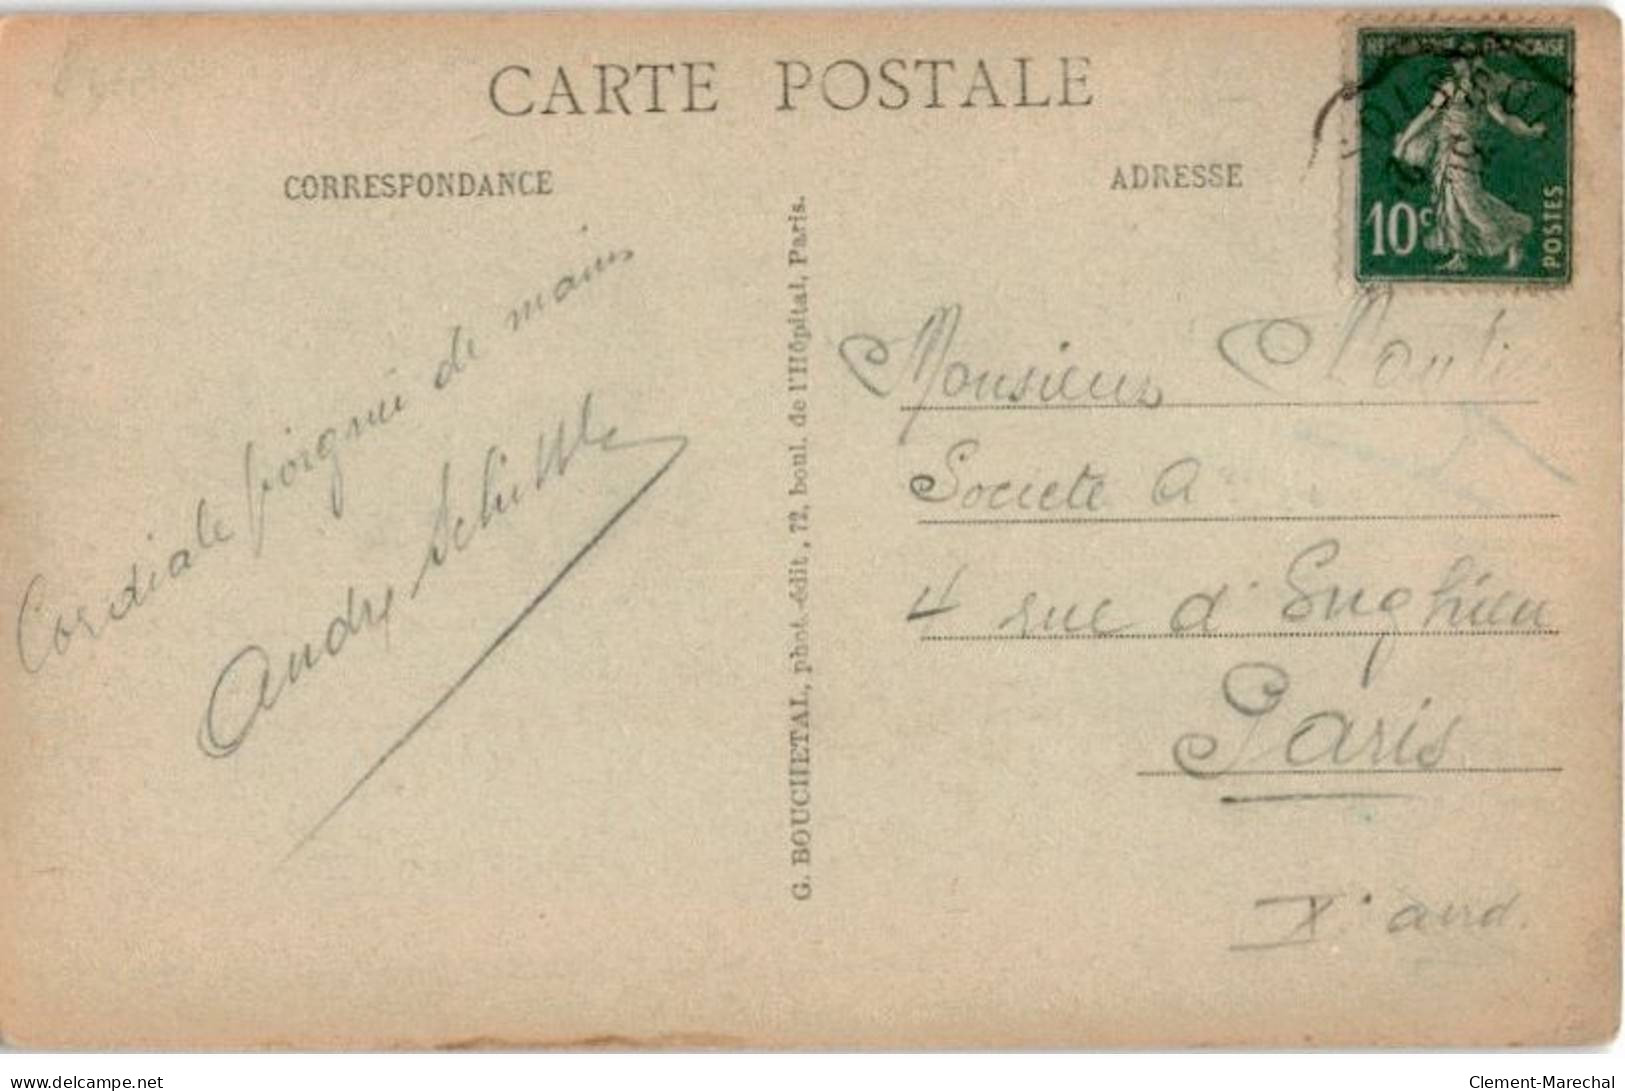 CARTE POSTALE
CORRESPONDANCE
ADRESSE
RÉPUBLIQUE FRANÇAISE
10c
POSTES
Cordiale poignée de mains
André
G. BOUCHETAL, phot.-édit, 72, boul. de l'Hôpital, Paris.
Monsieur
Société A
4 rue d'Enghien
Paris
X° arrd.
www.delcampe.net
Clement-Marechal